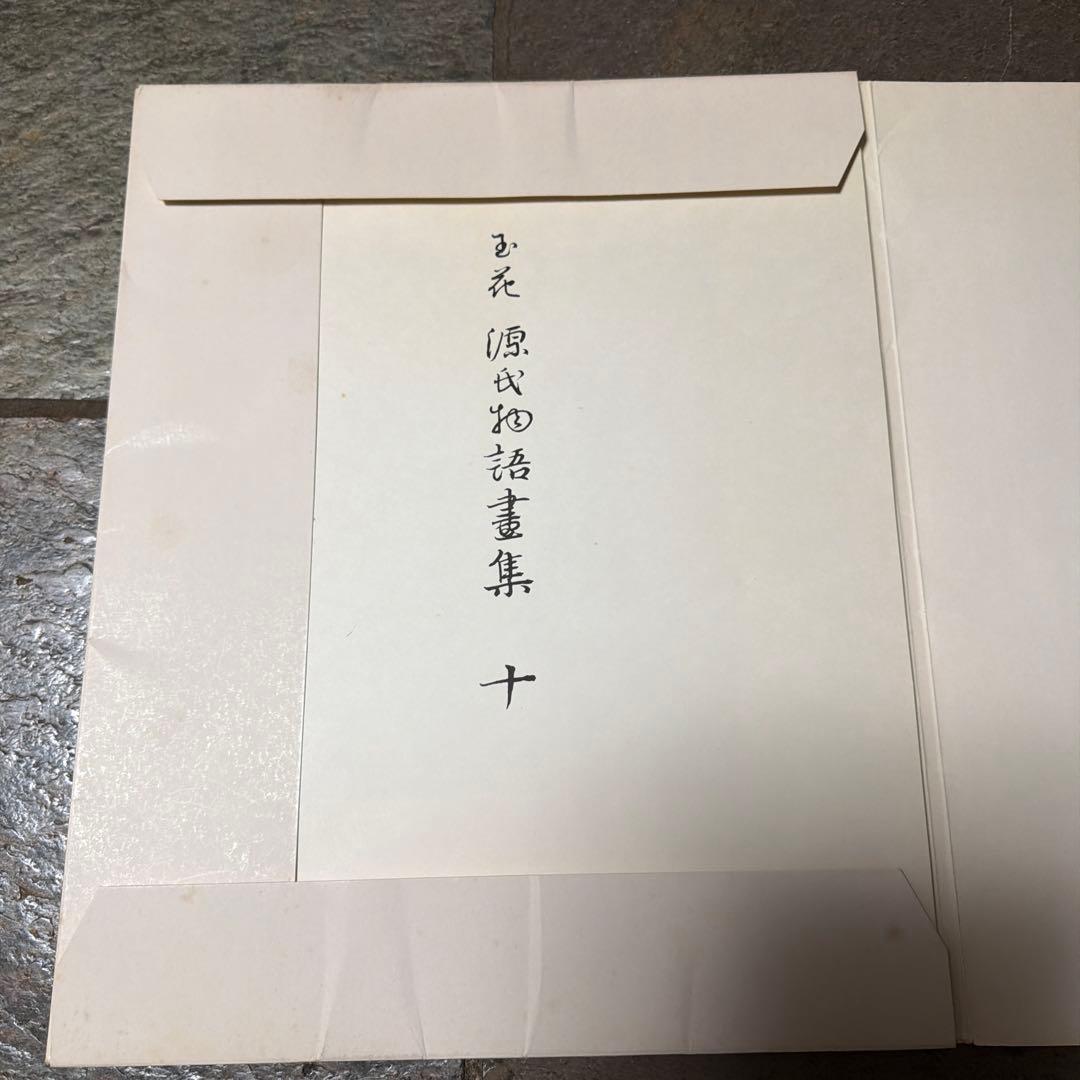 玉花 源氏物語畫集 十